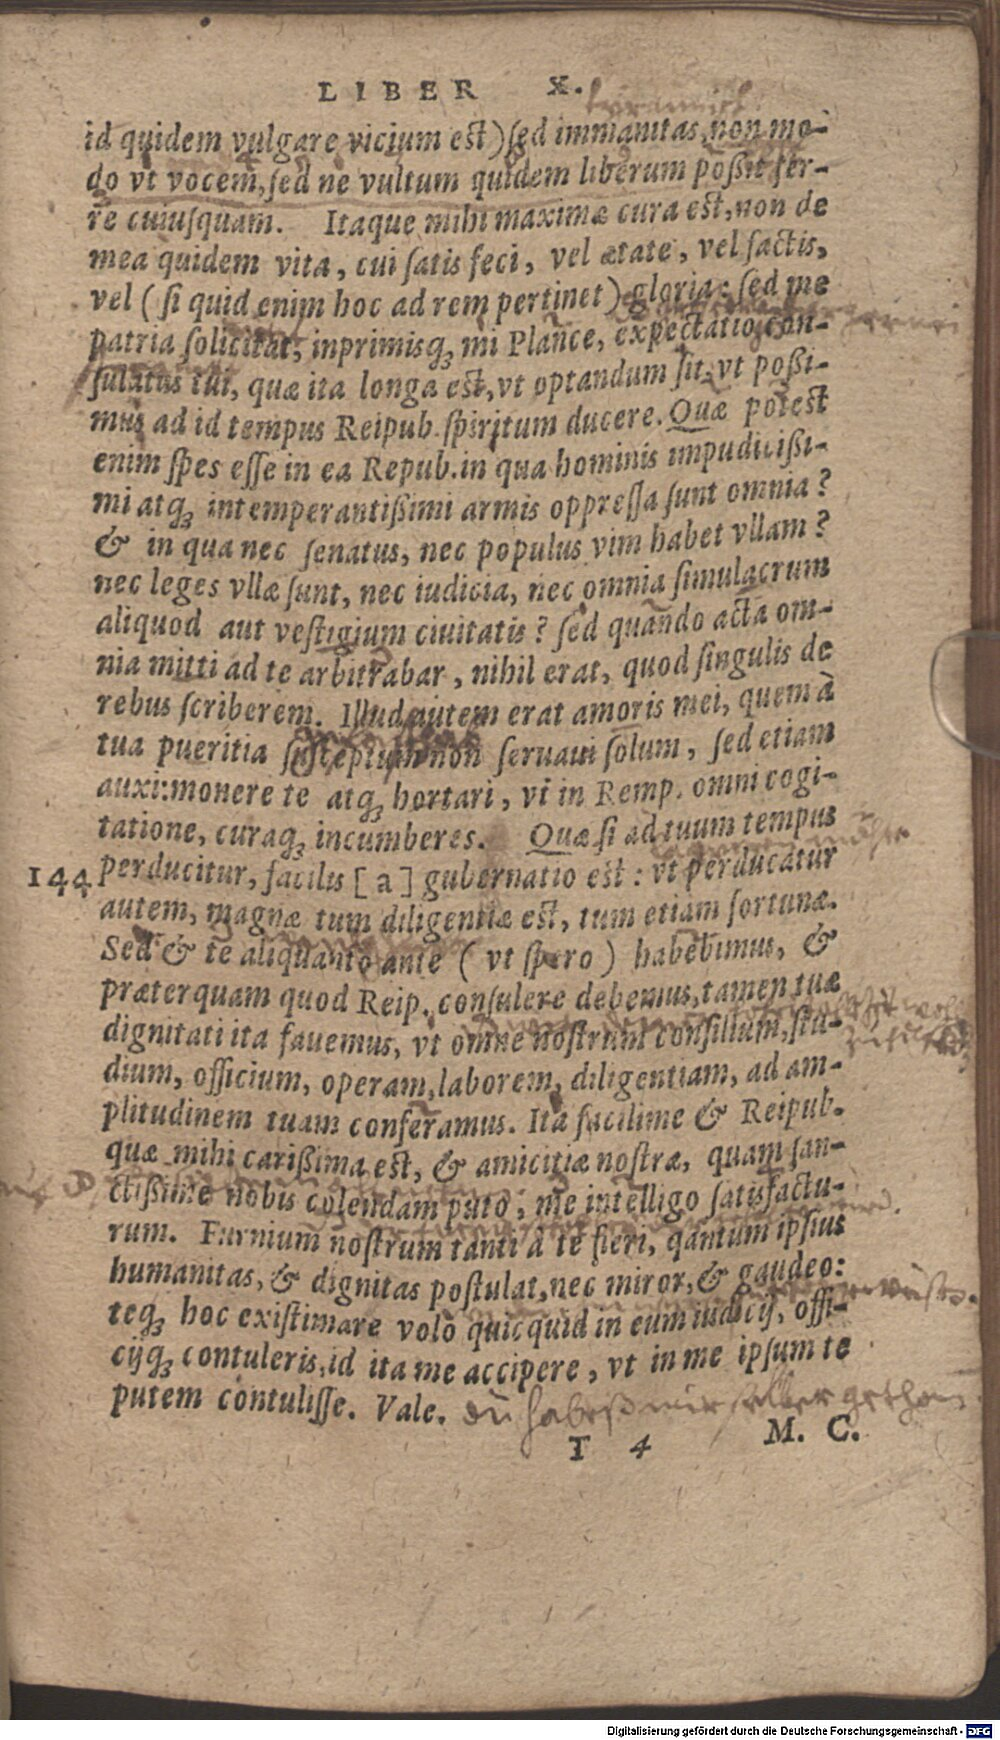 LIBER X.
id quidem vulgare vicium est) sed immanitas, non mo-
do vt vocem, sed ne vultum quidem liberum poßit fer-
re cuiusquam. Itaque mihi maximæ cura est, non de
mea quidem vita, cui satis feci, vel ætate, vel factis,
vel (si quid enim hoc ad rem pertinet) gloria: sed me
patria solicitat, inprimisq; mi Plance, expectatio con-
sulatus tui, quæ ita longa est, vt optandum sit, vt poßi-
mus ad id tempus Reipub. spiritum ducere. Quæ potest
enim spes esse in ea Repub. in qua hominis impudicißi-
mi atq; intemperantißimi armis oppressa sunt omnia?
& in qua nec senatus, nec populus vim habet vllam?
nec leges vllæ sunt, nec iudicia, nec omnia simulacrum
aliquod aut vestigium ciuitatis? sed quando acta om-
nia mitti ad te arbitrabar, nihil erat, quod singulis de
rebus scriberem. Illud autem erat amoris mei, quem à
tua pueritia susceptum non seruaui solum, sed etiam
auxi: monere te atq; hortari, vt in Remp. omni cogi-
tatione, curaq; incumberes. Quæ si ad tuum tempus
144 perducitur, facilis [a] gubernatio est: vt perducatur
autem, magnæ tum diligentiæ est, tum etiam fortunæ.
Sed & te aliquanto ante (vt spero) habebimus, &
præterquam quod Reip. consulere debemus, tamen tuæ
dignitati ita fauemus, vt omne nostrum consilium, stu-
dium, officium, operam, laborem, diligentiam, ad am-
plitudinem tuam conferamus. Ita facilime & Reipub.
quæ mihi carißima est, & amicitiæ nostræ, quam san-
ctißime nobis colendam puto, me intelligo satisfactu-
rum. Furnium nostrum tanti à te fieri, qantum ipsius
humanitas, & dignitas postulat, nec miror, & gaudeo:
teq; hoc existimare volo quicquid in eum iudicij, offi-
cijq; contuleris, id ita me accipere, vt in me ipsum te
putem contulisse. Vale. du habest mir selber gethan
I 4 M. C.
Digitalisierung gefördert durch die Deutsche Forschungsgemeinschaft - DFG